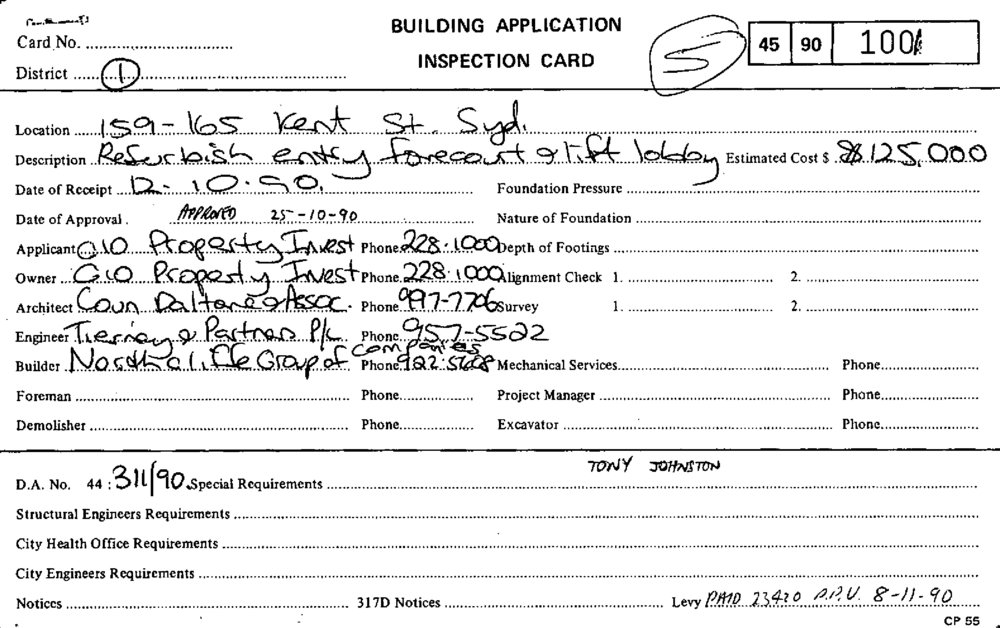 BUILDING APPLICATION
INSPECTION CARD
Card No.
District 1
5
45 90 1001
Location 159-165 Kent St. Syd.
Description Refurbish entry forecourt & lift lobby Estimated Cost $ $125,000
Date of Receipt 12.10.90. Foundation Pressure
Date of Approval APPROVED 25-10-90 Nature of Foundation
Applicant GIO Property Invest Phone 228.1000 Depth of Footings
Owner GIO Property Invest Phone 228.1000 Alignment Check 1. 2.
Architect Daltone & Assoc. Phone 997-7706 Survey 1. 2.
Engineer Tierney & Partners P/L Phone 957-5522
Builder Group of Companies Phone 922.5608 Mechanical Services Phone
Foreman Phone Project Manager Phone
Demolisher Phone Excavator Phone
TONY JOHNSTON
D.A. No. 44 : 311/90 Special Requirements
Structural Engineers Requirements
City Health Office Requirements
City Engineers Requirements
Notices 317D Notices Levy PAID 23420 8-11-90
CP 55